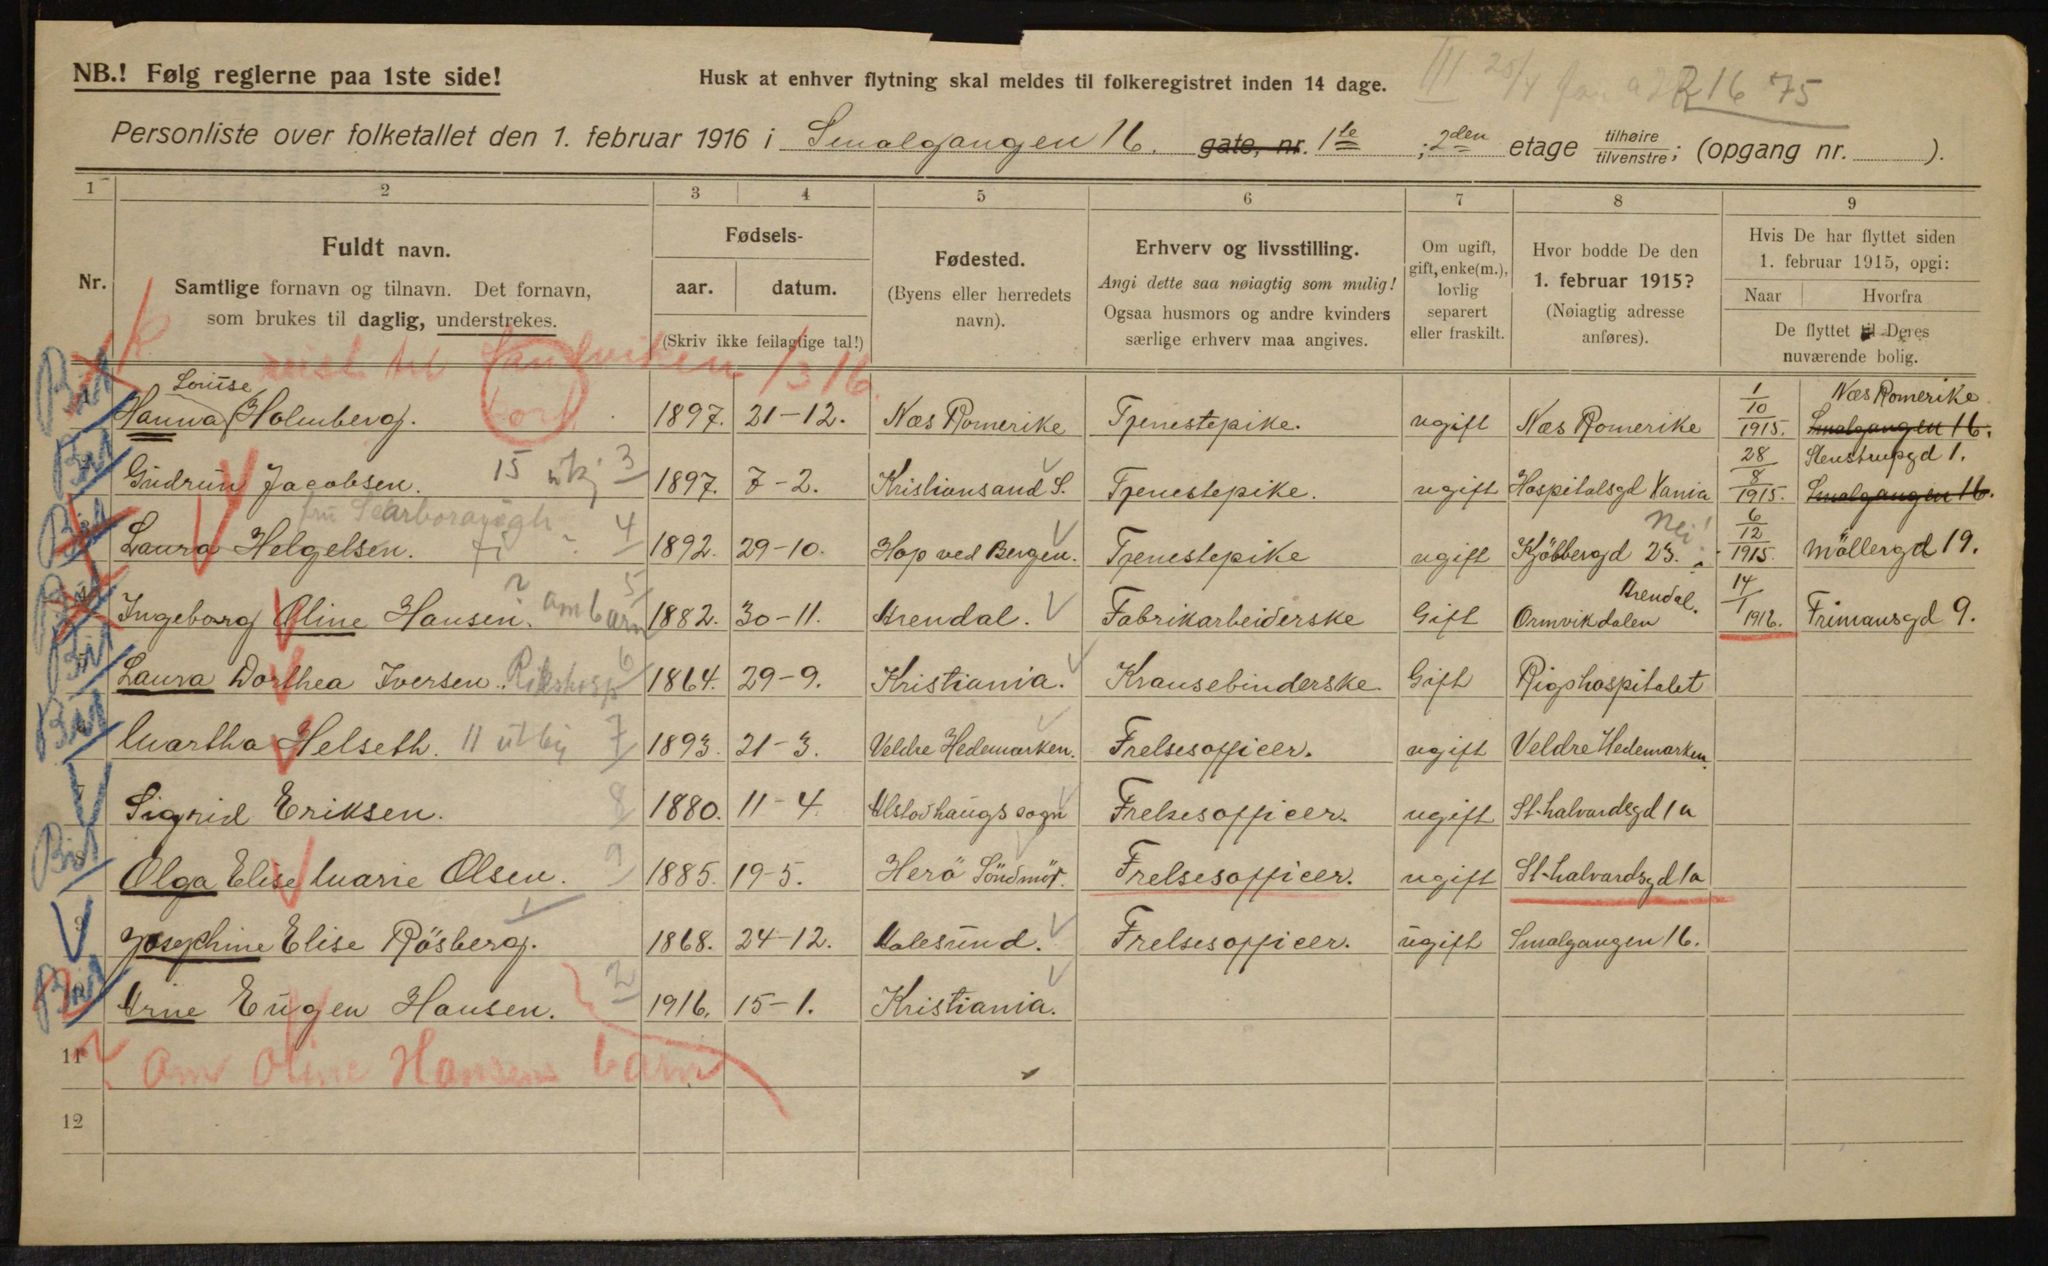 NB.! Følg reglerne paa 1ste side!
Husk at enhver flytning skal meldes til folkeregistret inden 14 dage.
III 25/4 R 16 75
Personliste over folketallet den 1. februar 1916 i Smalgangen 16. gate, nr. 1te ; 2den etage tilhøire tilvenstre; (opgang nr. ).
1 2 3 4 5 6 7 8 9
Nr.
Fuldt navn.
Samtlige fornavn og tilnavn. Det fornavn,
som brukes til daglig, understrekes.
Fødsels-
aar. datum.
(Skriv ikke feilagtige tal!)
Fødested.
(Byens eller herredets
navn).
Erhverv og livsstilling.
Angi dette saa nøiagtig som mulig!
Ogsaa husmors og andre kvinders
særlige erhverv maa angives.
Om ugift,
gift, enke(m.),
lovlig
separert
eller fraskilt.
Hvor bodde De den
1. februar 1915?
(Nøiagtig adresse
anføres).
Hvis De har flyttet siden
1. februar 1915, opgi:
Naar Hvorfra
De flyttet til Deres
nuværende bolig.
reist til Sandviken 1/3 16.
bort
Louise
Hanna Holmberg. 1897. 21-12. Næs Romerike Tjenestepike. ugift Næs Romerike 1/10 1915. Næs Romerike Smalgangen 16.
Gudrun Jacobsen. 15 3 1897. 7-2. Kristiansand S. Tjenestepike. ugift Hospitalsgd Kania 28/8 1915. Stenstrupgd 1. Smalgangen 16.
fru Scarborough
Laura Helgelsen. ? 4 1892. 29-10. Hop ved Bergen. Tjenestepike ugift Kjöbbergd 23. Nei! 6/12 1915. Möllergd 19.
Ingeborg Oline Hansen. ? am barn 5 1882. 30-11. Arendal. Fabrikarbeiderske Gift Arendal. Ormvikdalen 14/1 1916. Frimansgd 9.
Laura Dorthea Iversen. Rikshosp 6 1864. 29-9. Kristiania. Kransebinderske Gift Rigshospitalet
Martha Helseth. 11 utby 7 1893. 21-3. Veldre Hedemarken. Frelsesofficer. ugift Veldre Hedemarken.
Sigrid Eriksen. 8 1880. 11-4. Alstadhaugs sogn Frelsesofficer. ugift St. halvardsgd 1a
Olga Elise Marie Olsen. 9 1885. 19-5. Herö Söndmör. Frelsesofficer. ugift St. halvardsgd 1a
Josephine Elise Rösberg. 1 1868. 24-12. Aalesund. Frelsesofficer. ugift Smalgangen 16.
Arne Eugen Hansen. 2 1916. 15-1. Kristiania.
11 Am Oline Hansens barn
12